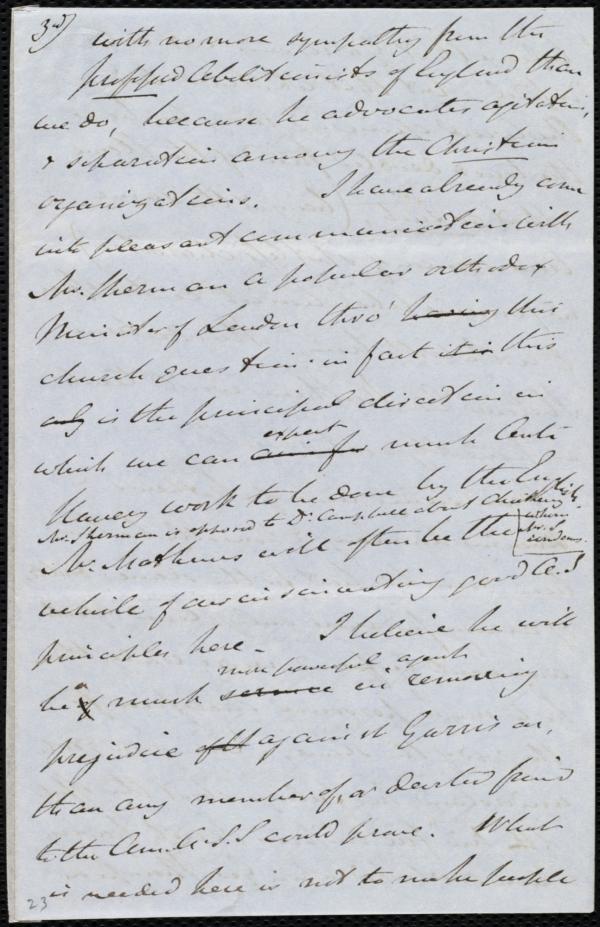 3rd)
with no more sympathy from the
professed Abolitionists of England than
we do, because he advocates agitation,
& separation among the Christian
organizations. I have already come
into pleasant communication with
Mr. Sherman a popular orthodox
Minister of London thro' having this
church question. in fact it is this
only is the principal direction in
which we can aim for expect much Anti
Slavery work to be done by the English.
Mr. Sherman is opposed to Dr. Campbell about Cheering whom Mr. S. condemns.
Mr. Mathews will often be the
vehicle of our insinuating good A.S
principles here - I believe he will
be a much more powerful agent service in removing
prejudice against Garrison,
than any member of, or devoted friend
to the Am. A. S. S could prove. What
is needed here is not to make people
23